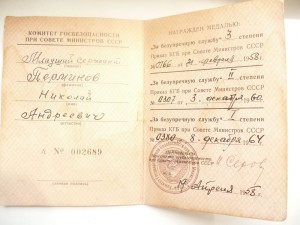 КОМИТЕТ ГОСБЕЗОПАСНОСТИ
ПРИ СОВЕТЕ МИНИСТРОВ СССР
Младший сержант
Перминов
Николай
Андреевич
А № 002689
НАГРАЖДЕН МЕДАЛЬЮ:
"За безупречную службу" 3 степени
Приказ КГБ при Совете Министров СССР
февраля 1958 г.
"За безупречную службу" II степени
Приказ КГБ при Совете Министров СССР
№ 0307 от 3 декабря 1960
"За безупречную службу" I степени
Приказ КГБ при Совете Министров СССР
№ 0380 8 декабря 1964
И. Серов
19 апреля 1958 г.